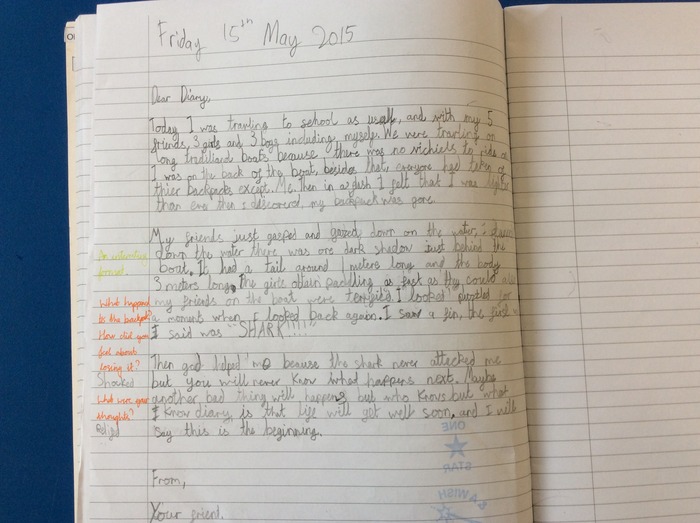 Friday 15th May 2015
Dear Diary,
Today I was traviling to school as usall, and with my 5
friends, 3 girls and 3 boys including myself. We were traviling on
long tradiliard boats because there was no vichiels to ride on
I was on the back of the boat, besides that, everyone had taken of
thier backpacks except Me. Then in a gash I felt that I was lighter
than ever then I discovered, my backpack was gone.
My friends just gasped and gazed down on the water, I
down the water there was one dark shadow just behind the
An interesting
boat. It had a tail around meters long and the body
format.
3 meters long. The girls paddling as fast as they could
What happened
my friends on the boat were terrified. I looked puzzled for
to the backpack?
a moment when I looked back again. I saw a fin, the first
How did you
I said was "SHARK!!!!"
feel about
losing it?
Then god helped me beause the shark never attacked me
Shocked
but you will never know what happens next. Maybe
What were your
another bad thing will happens but who knows but what
thoughts?
I know diary, is that life will get well soon, and I will
say this is the beginning.
ONE
STAR
A WISH
From,
Your frient.